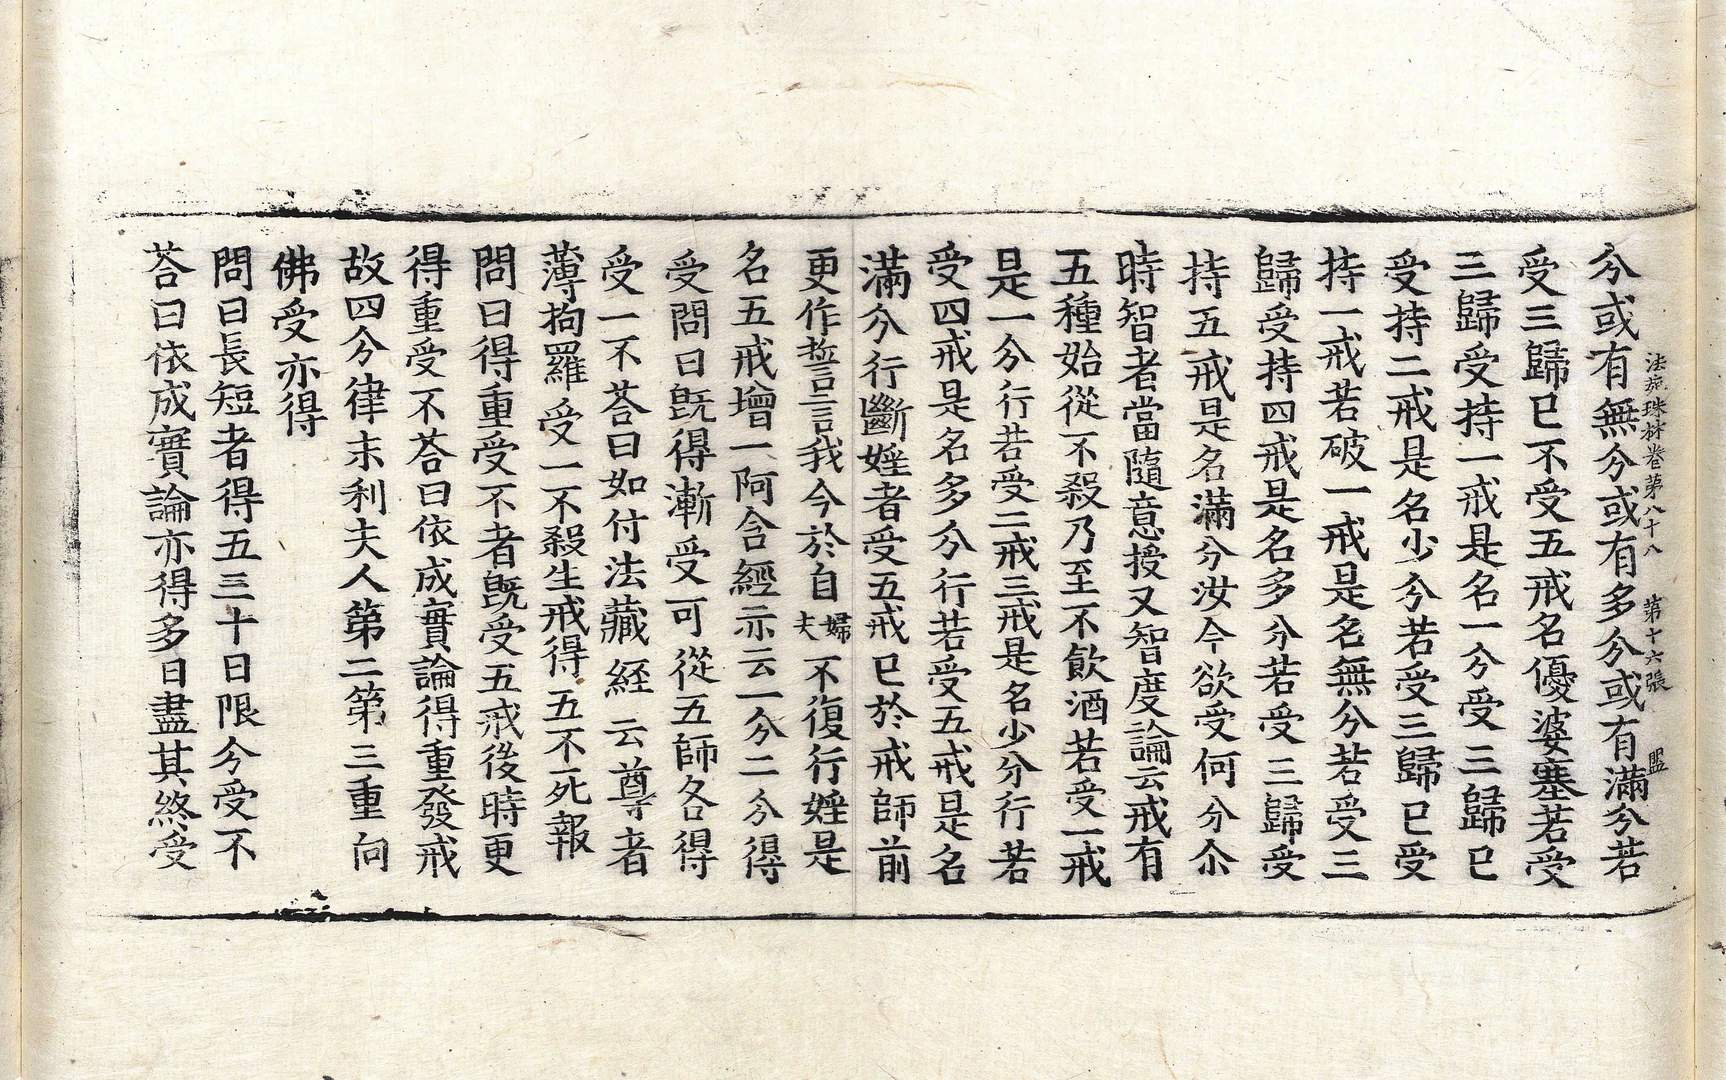 法苑珠林卷第八十八 第十六張 盟
分或有無分或有多分或有滿分若
受三歸已不受五戒名優婆塞若受
三歸受持一戒是名一分受三歸已
受持二戒是名少分若受三歸已受
持一戒若破一戒是名無分若受三
歸受持四戒是名多分若受三歸受
持五戒是名滿分汝今欲受何分尒
時智者當隨意授又智度論云戒有
五種始從不殺乃至不飲酒若受一戒
是一分行若受二戒三戒是名少分行若
受四戒是名多分行若受五戒是名
滿分行斷婬者受五戒已於戒師前
更作誓言我今於自婦夫不復行婬是
名五戒增一阿含經亦云一分二分得
受問曰旣得漸受可從五師各得
受一不荅曰如付法藏經云尊者
薄拘羅受一不殺生戒得五不死報
問曰得重受不者旣受五戒後時更
得重受不荅曰依成實論得重發戒
故四分律末利夫人第二第三重向
佛受亦得
問曰長短者得五三十日限分受不
荅曰依成實論亦得多日盡其終受